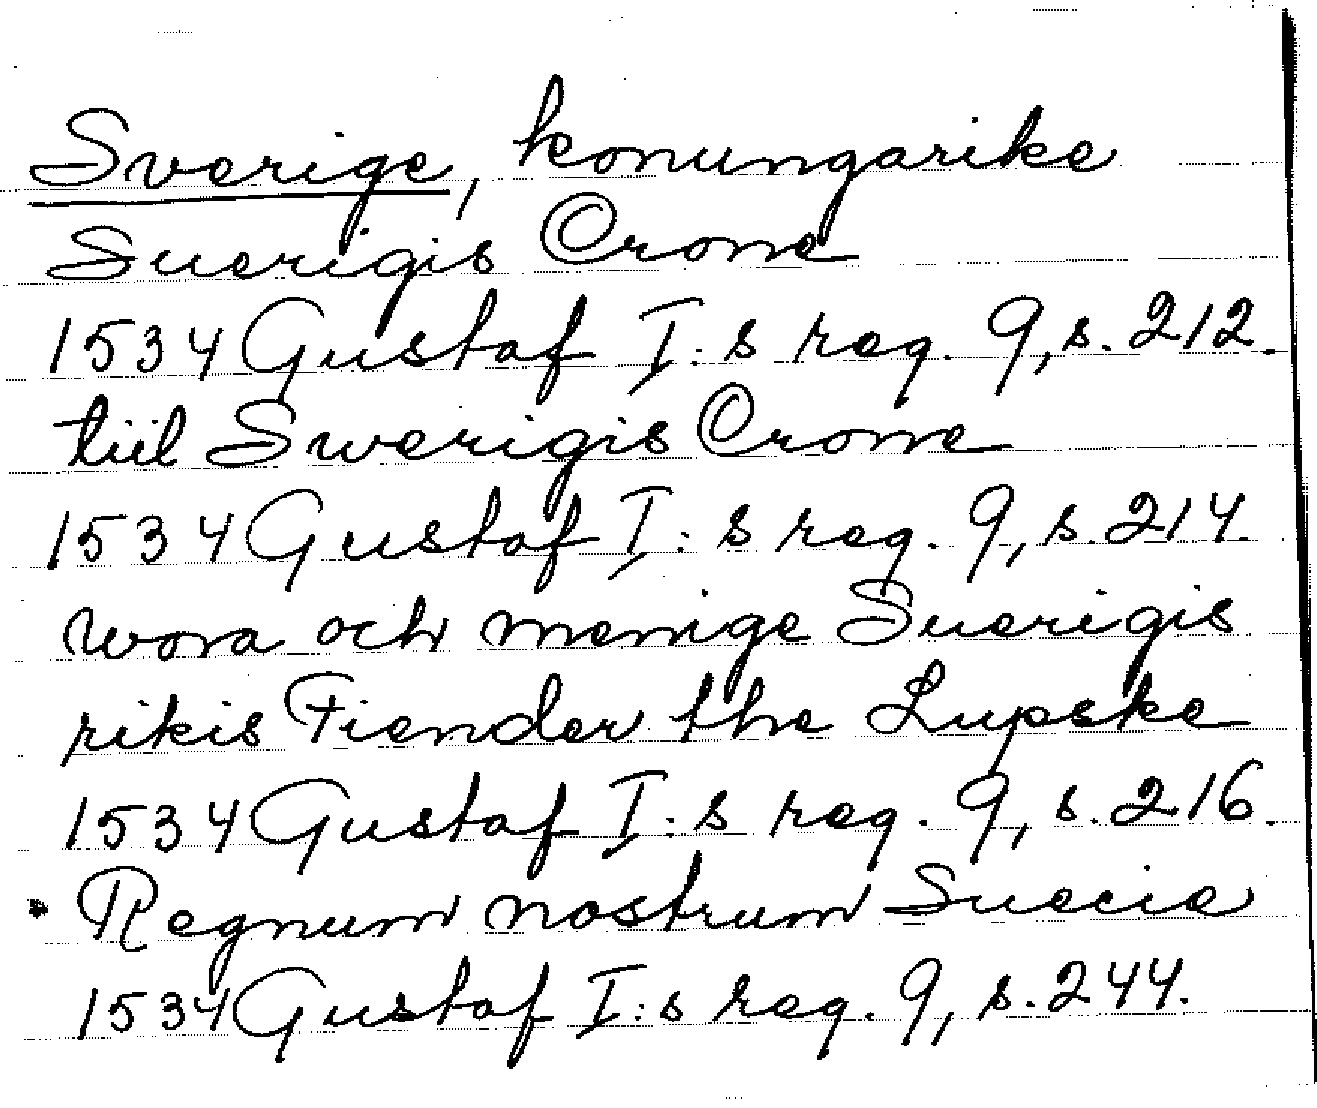 Sverige, konungarike
Suerigis Crone
1534 Gustaf I:s reg. 9, s. 212.
tiil Swerigis Crone
1534 Gustaf I:s reg. 9, s. 214.
wora och menige Suerigis
rikis Fiender the Lupske
1534 Gustaf I:s reg. 9, s. 216.
Regnum nostrum Suecie
1534 Gustaf I:s reg. 9, s. 244.